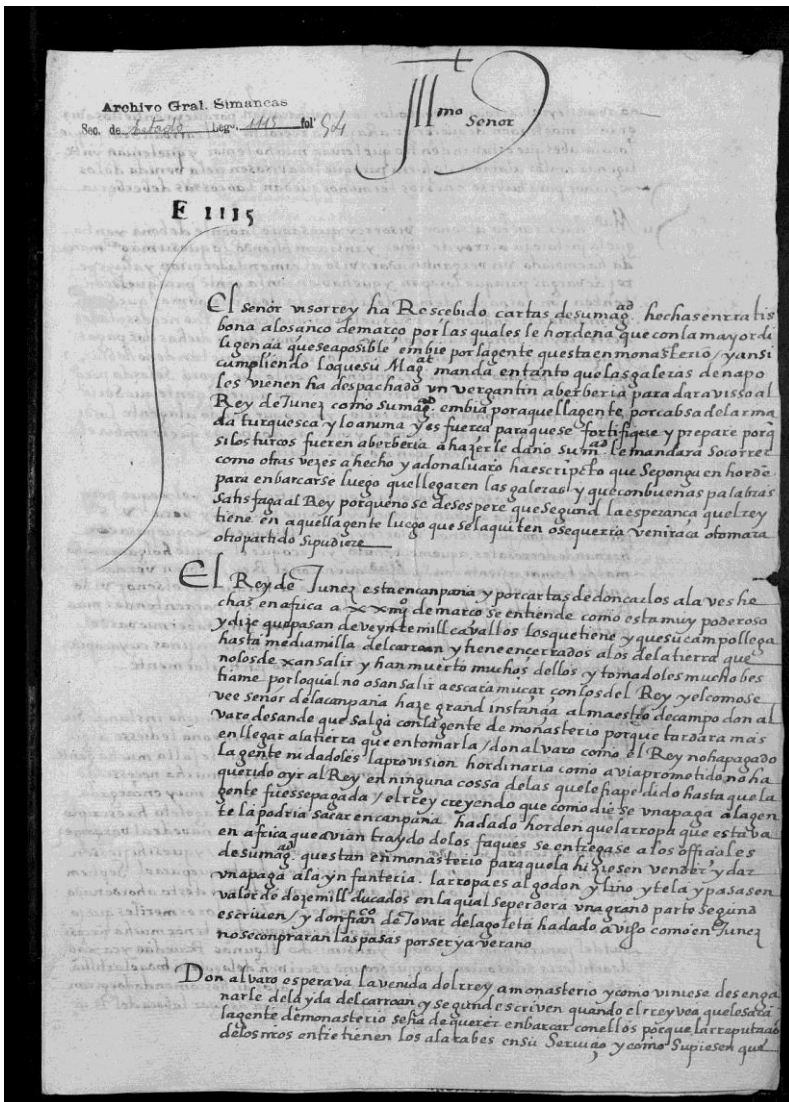 Archivo Gral. Simancas
Sec. de Estado Lego. 1115 fol. 54
Illmo
Señor
E 1115
El señor visorrey ha Rescebido cartas de sumagad. hechas en rratis
bona a los cinco de março por las quales le hordena que con la mayor di
ligençia que sea posible, embie por la gente questa en monasterio / y ansi
cumpliendo lo que su Magat manda en tanto que las galeras de napo
les vienen ha despachado vn vergantin a berberia para dar avisso al
Rey de Tunez como sumagad. embia por aquella gente, por cabsa del arma
da turquesca y lo anima y es fuerça para que se fortifique y prepare porq
si los turcos fueren a berberia a hazerle daño su mad le mandara socorrer
como otras vezes a hecho y a don aluaro ha escripto que se ponga en horde
para enbarcarse luego que llegaren las galeras / y que con buenas palabras
satisfaga al Rey porque no se desespere que segund la esperança quel rey
tiene en aquella gente luego que se la quiten o se querria venir aca o tomara
otro partido si pudiere
El Rey de Tunez esta en canpaña y por cartas de don carlos ala ves he
chas en africa a xxiiij de março se entiende como esta muy poderoso
y dize que pasan de veynte mill cavallos los que tiene y que su campo llega
hasta media milla del carroan y tiene encerrados a los de la tierra que
no los dexan salir y han muerto muchos dellos y tomadoles mucho bes
tiame por lo qual no osan salir a escaramuçar con los del Rey y el como se
vee señor de la canpaña haze grand instançia al maestro de campo don al
varo de sande que salga con la gente de monasterio porque tardara mas
en llegar a la tierra que en tomarla / don alvaro como el Rey no ha pagado
la gente ni dadoles la provision hordinaria como avia prometido no ha
querido oyr al Rey en ninguna cossa de las que le ha pedido hasta que la
gente fuesse pagada / el rrey creyendo que como diese vna paga a la gen
te la podria sacar en canpaña ha dado horden que la rropa que estava
en africa que avian traydo de los faques se entregase a los offiçiales
de sumagad. questan en monasterio para que la hiziesen vender y dar
vna paga a la ynfanteria. la rropa es algodon y lino y tela y pasas en
valor de doze mill ducados en la qual se perdera vna grand parte segund
escriuen / y don franco de Tovar de la goleta ha dado aviso como en Tunez
no se conpraran las pasas por ser ya verano
Don alvaro esperava la venida del rrey a monasterio y como viniese desenga
ñarle de la yda del carroan y segund escriven quando el rrey vea que le saca
la gente de monasterio se ha de querer enbarcar con ellos porque la rreputaçio
de los nros entretienen los alarabes en su Serviçio y como supiesen que